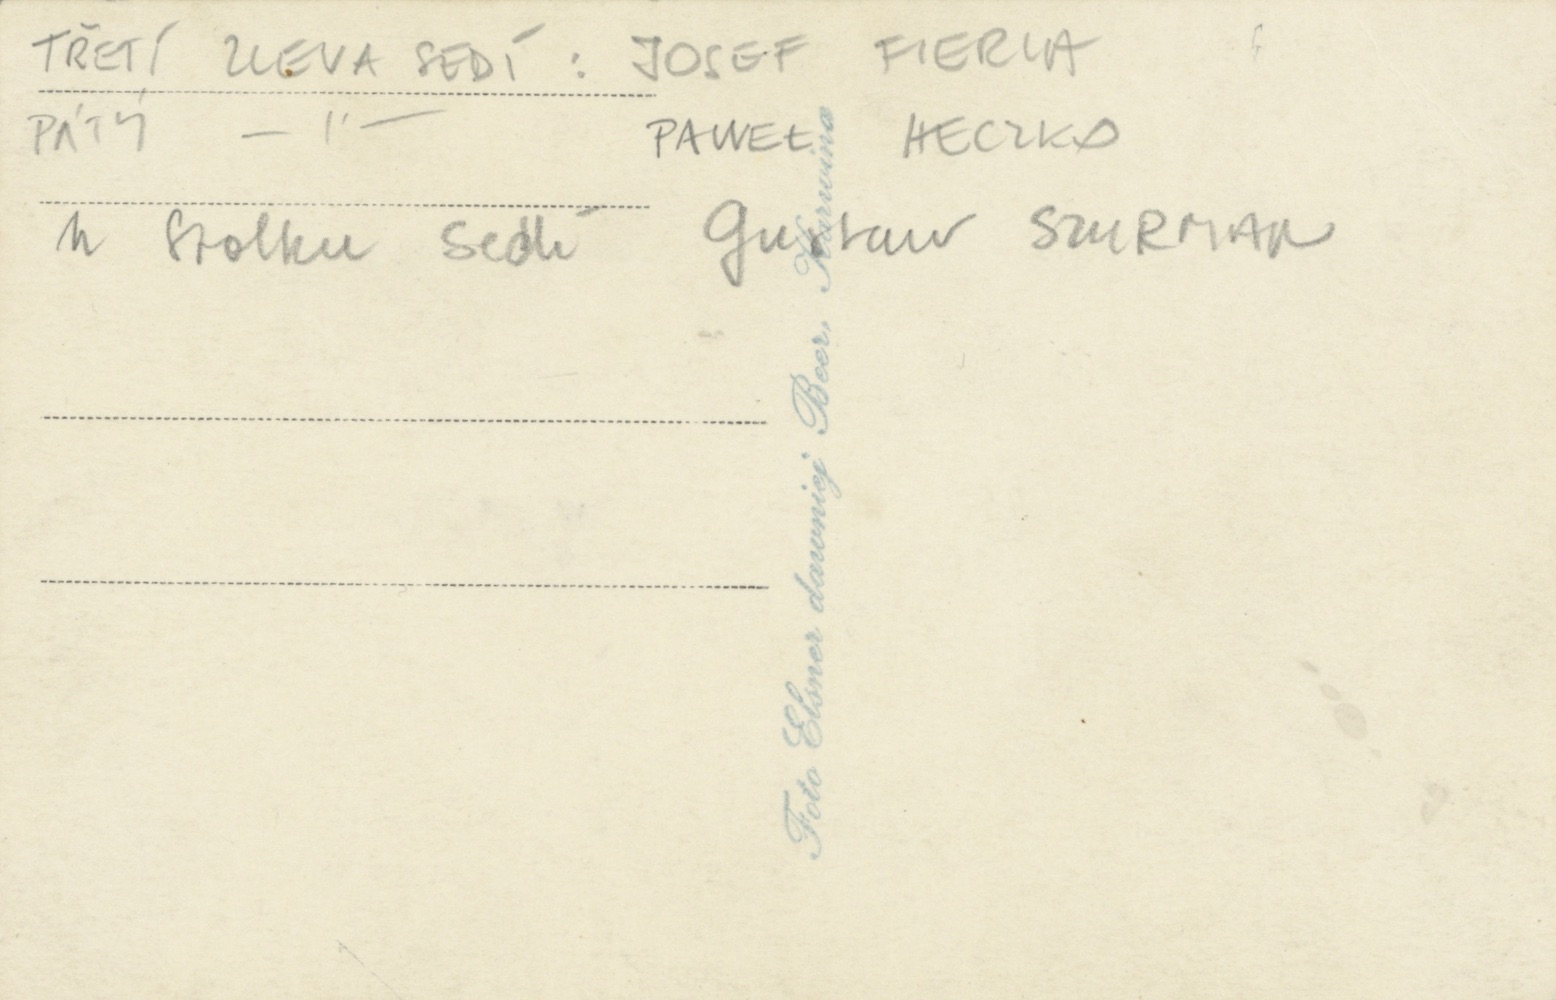 TŘETÍ ZLEVA SEDÍ : JOSEF FIERLA
PÁTÝ — " — PAWEŁ HECZKO
u stolku sedí Gustaw SZURMAN
Foto Elsner dawniej Beer, Karwina